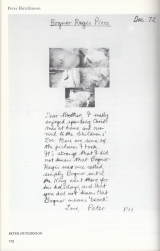 Peter Hutchinson
Bognor Regis Piece
Dec. 72
Dear Mother, I really
enjoyed spending Christ
mas at home and our
visit to the childrens'
Zoo. Here are some of
the pictures I took.
It's strange that I did
not know that Bognor
Regis was once called
simply Bognor until
the King went there for
his holidays and that
you did not know that
Bognor means 'beach'.
Love, Peter
PETER HUTCHINSON